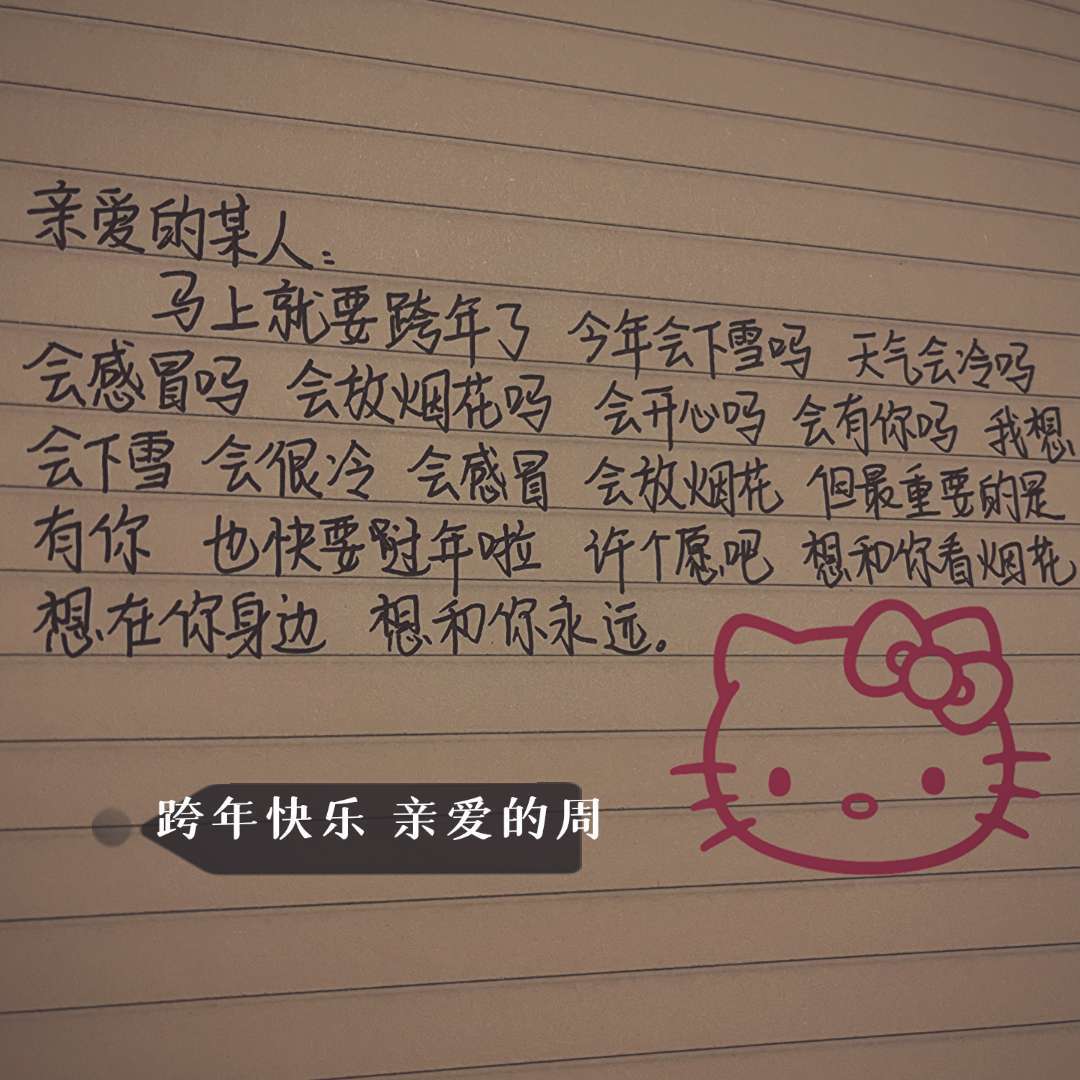 亲爱的某人:
马上就要跨年了 今年会下雪吗 天气会冷吗
会感冒吗 会放烟花吗 会开心吗 会有你吗 我想
会下雪 会很冷 会感冒 会放烟花 但最重要的是
有你 也快要过年啦 许个愿吧 想和你看烟花
想在你身边 想和你永远。
跨年快乐 亲爱的周